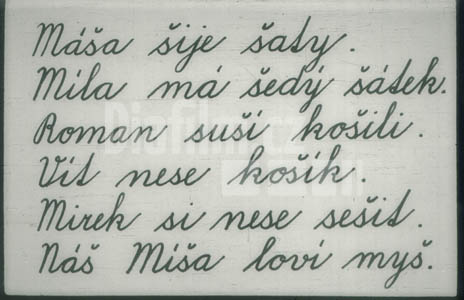 Máša šije šaty.
Míla má šedý šátek.
Roman suší košili.
Vít nese košík.
Mirek si nese sešit.
Náš Míša loví myš.